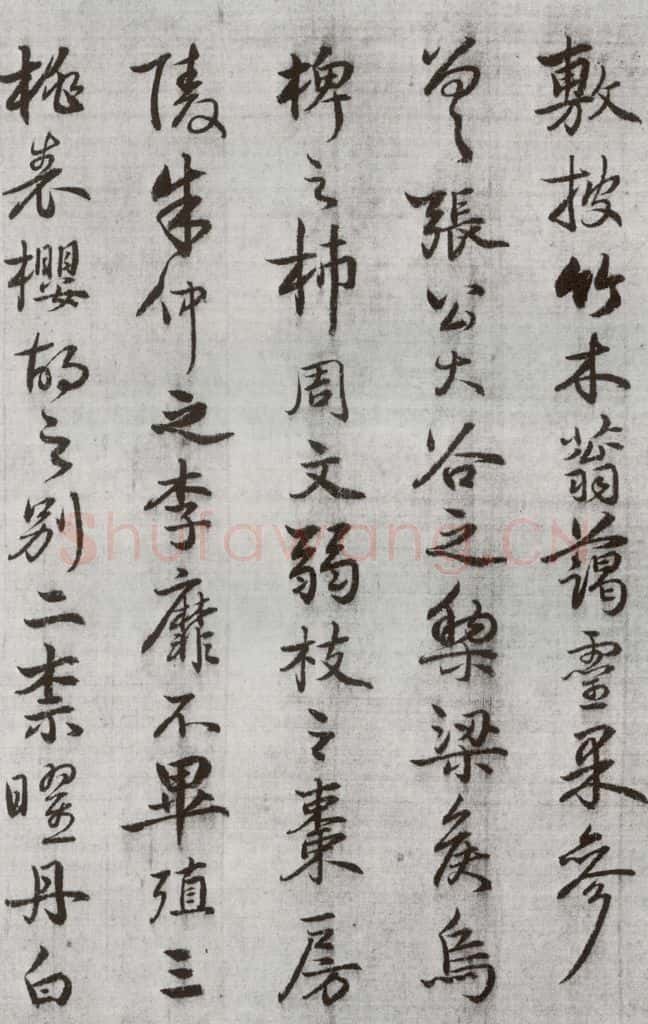 敷披竹木蓊藹靈果參
差張公大谷之梨梁侯烏
椑之柿周文弱枝之棗房
陵朱仲之李靡不畢殖三
桃表櫻胡之別二柰曜丹白
Shufawang.CN